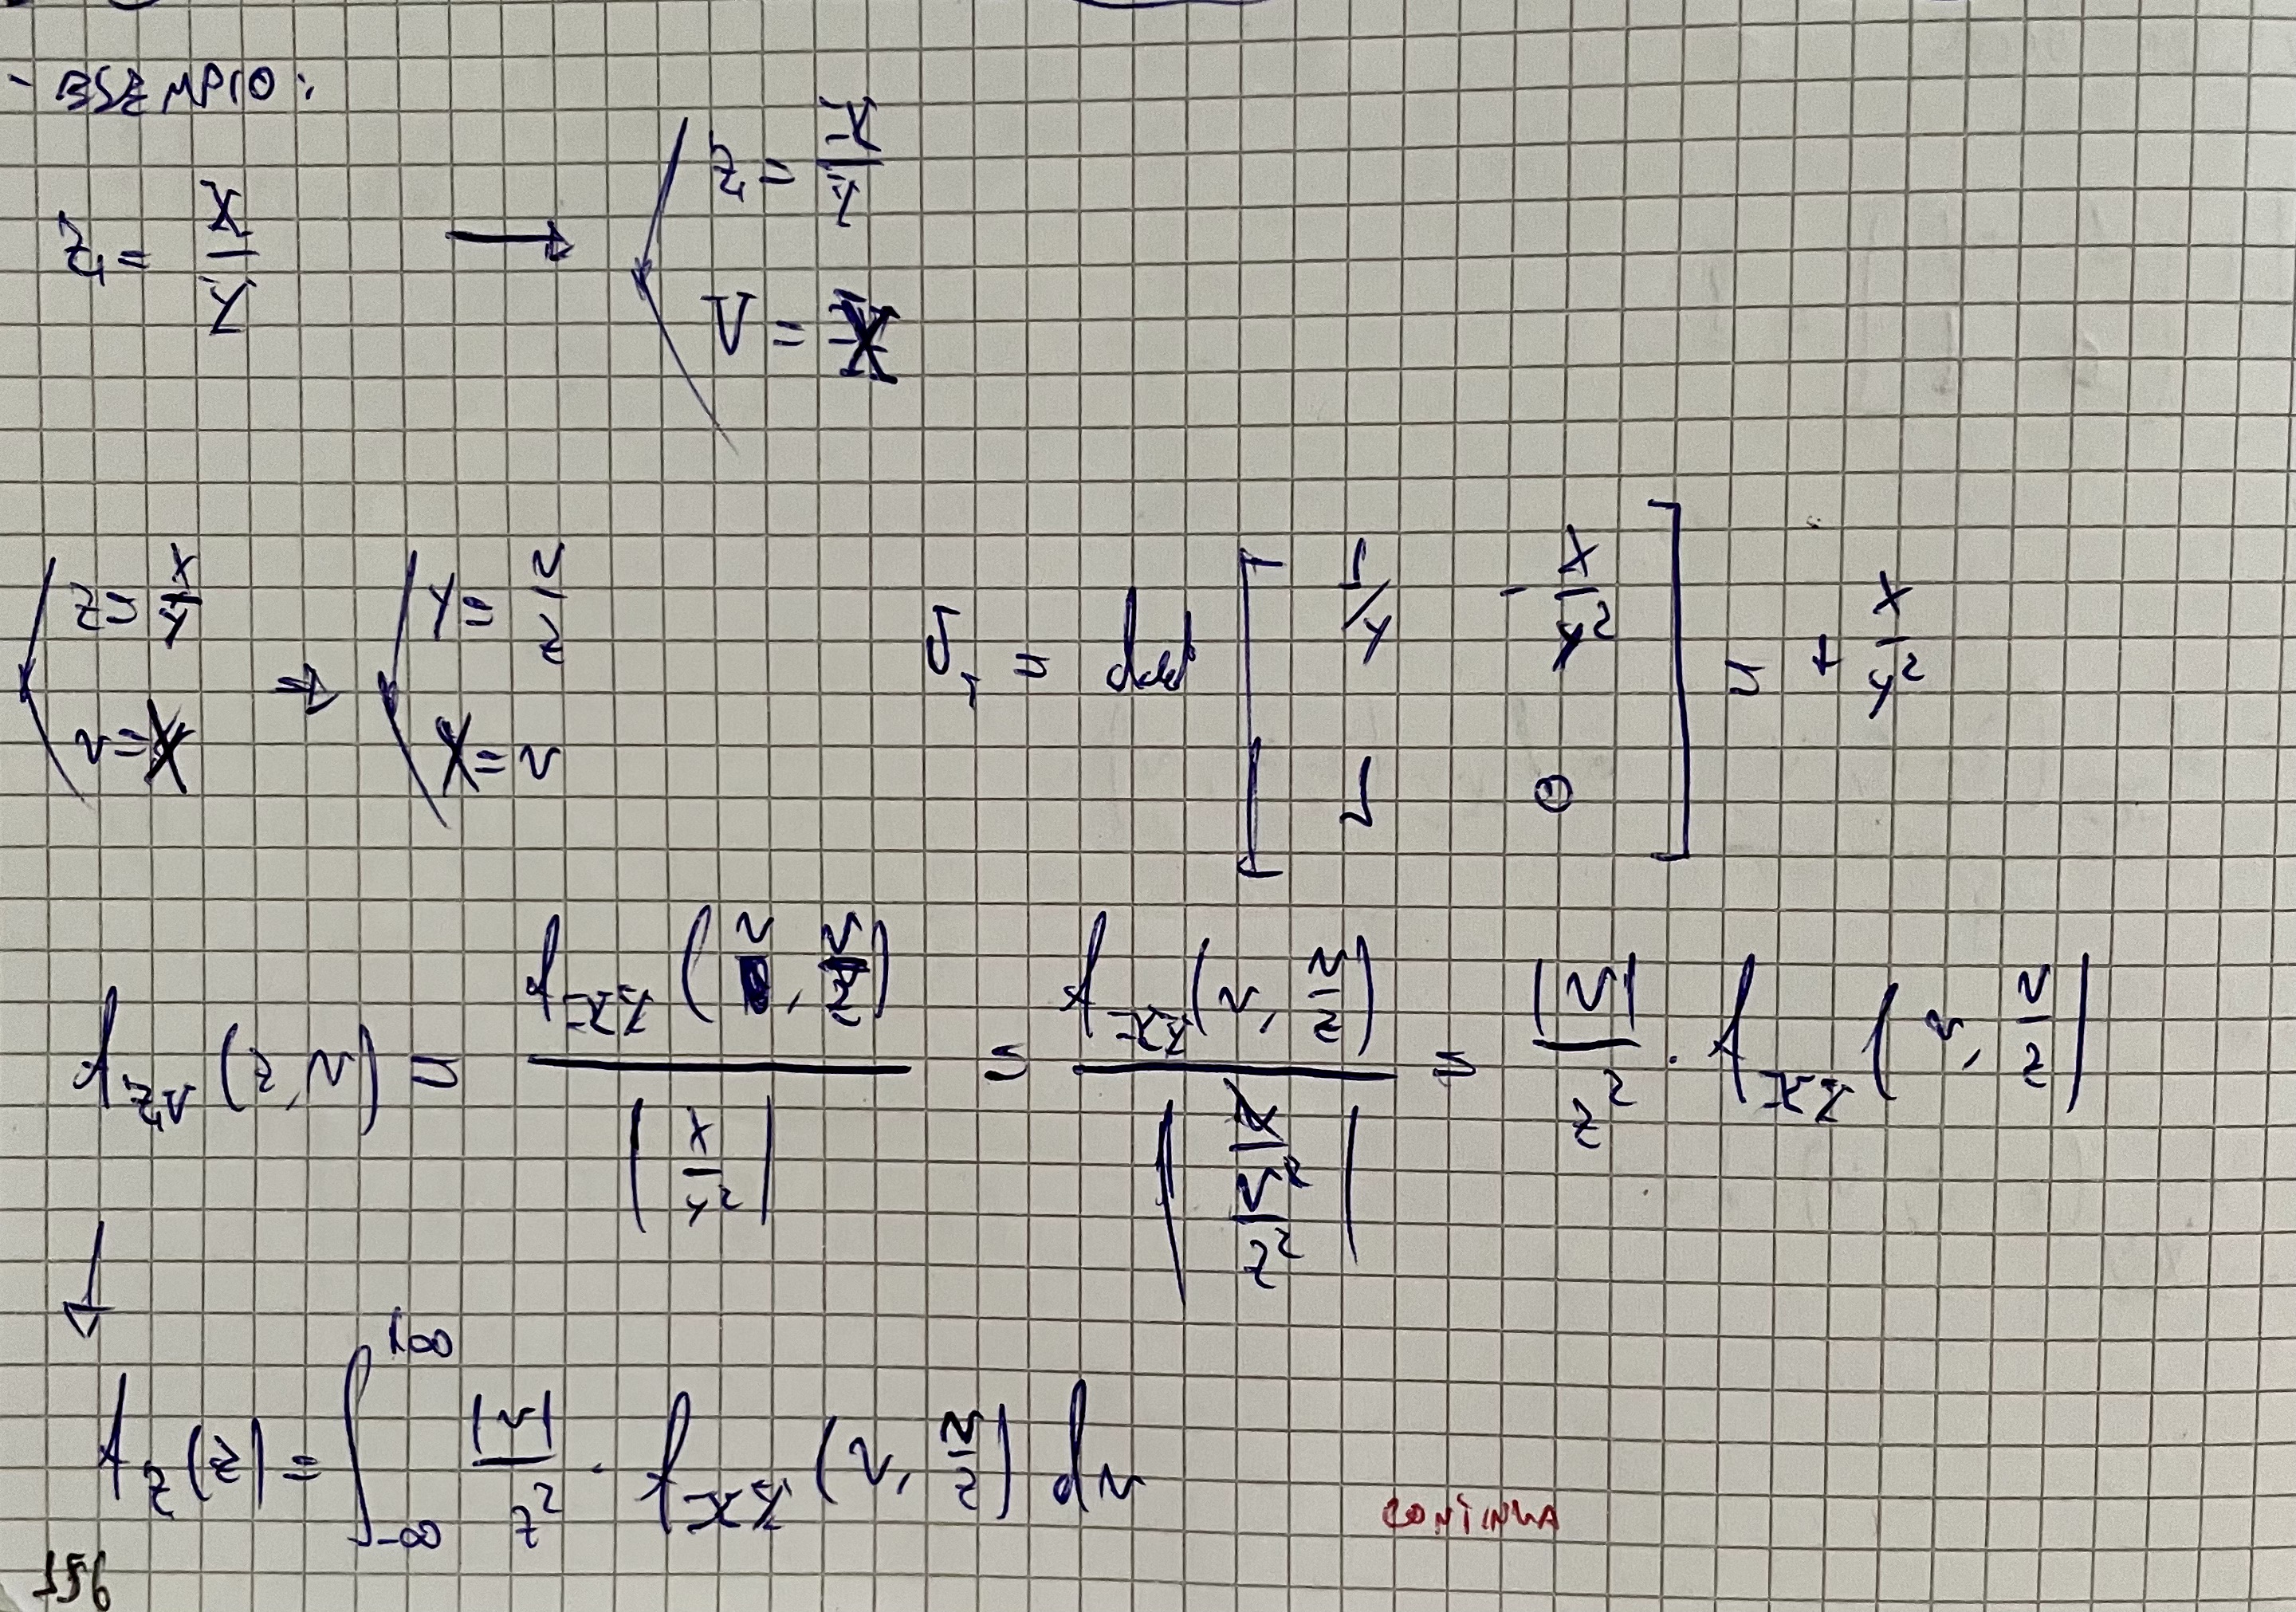 - ESEMPIO:
Z = X/Y → { Z = X/Y
V = X
{ z = x/y ⇒ { y = v/z
v = x x = v
J_T = det [ 1/y - x/y² ; 1 0 ] = + x/y²
f_ZV (z, v) = f_XY (v, v/z) / |x/y²| = f_XY (v, v/z) / |v/(v²/z²)| = |v|/z² · f_XY (v, v/z)
↓
f_Z (z) = ∫_{-∞}^{+∞} |v|/z² · f_XY (v, v/z) dv
CONTINUA
156